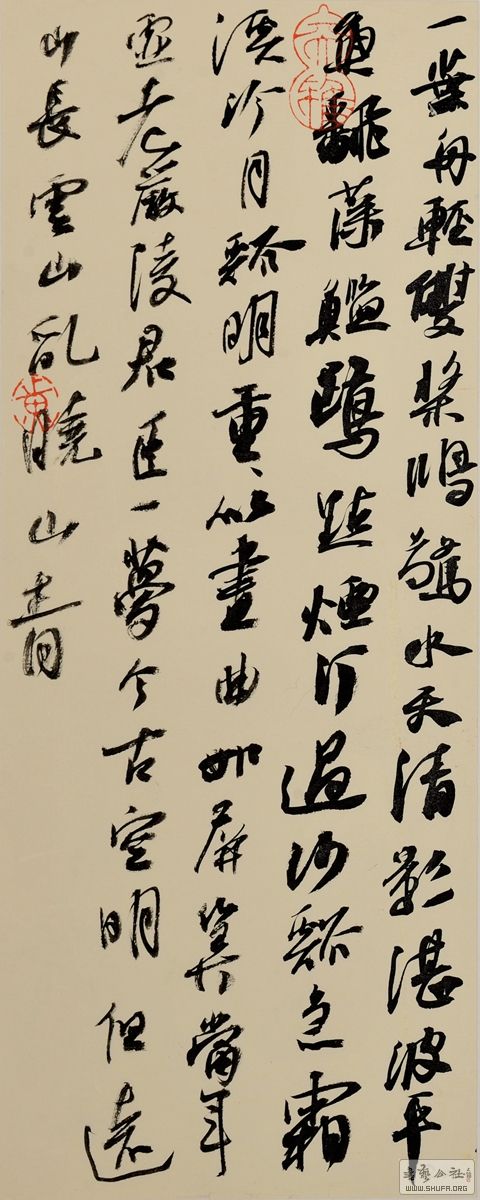 一葉舟輕雙槳鴻驚水天清影湛波平
魚翻藻鑑鷺點煙汀過沙谿急霜
溪冷月谿明重〻似畫曲如屏算當年
虛老嚴陵君臣一夢今古空明但遠
山長雲山乱曉山青
书艺公社
WWW.SHUFA.ORG